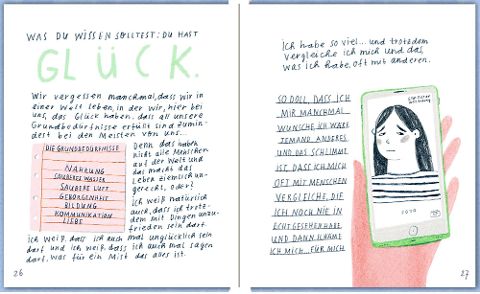 WAS DU WISSEN SOLLTEST: DU HAST
GLÜCK.
Wir vergessen manchmal, dass wir in
einer Welt leben, in der wir, hier bei
uns, das Glück haben, dass all unsere
Grundbedürfnisse erfüllt sind zumin-
dest bei den Meisten von uns...
DIE GRUNDBEDÜRFNISSE
NAHRUNG
SAUBERES WASSER
SAUBERE LUFT
GEBORGENHEIT
BILDUNG
KOMMUNIKATION
LIEBE
Denn das haben
nicht alle Menschen
auf der Welt und
das macht das
Leben ziemlich un-
gerecht, oder?
Ich weiß natürlich
auch, dass ich trotz-
dem mit Dingen unzu-
frieden sein darf.
Ich weiß, dass ich auch mal unglücklich sein
darf und ich weiß, dass ich auch mal sagen
darf, was für ein Mist das alles ist.
26
Ich habe so viel... und trotzdem
vergleiche ich mich und das,
was ich habe, oft mit anderen.
SO DOLL, DASS ICH
MIR MANCHMAL
WÜNSCHE, ICH WÄRE
JEMAND ANDERES
UND DAS SCHLIMME
IST, DASS ICH MICH
OFT MIT MENSCHEN
VERGLEICHE, DIE
ICH NOCH NIE IN
ECHT GESEHEN HABE
UND DANN SCHÄME
ICH MICH... FÜR MICH
FOTO
27